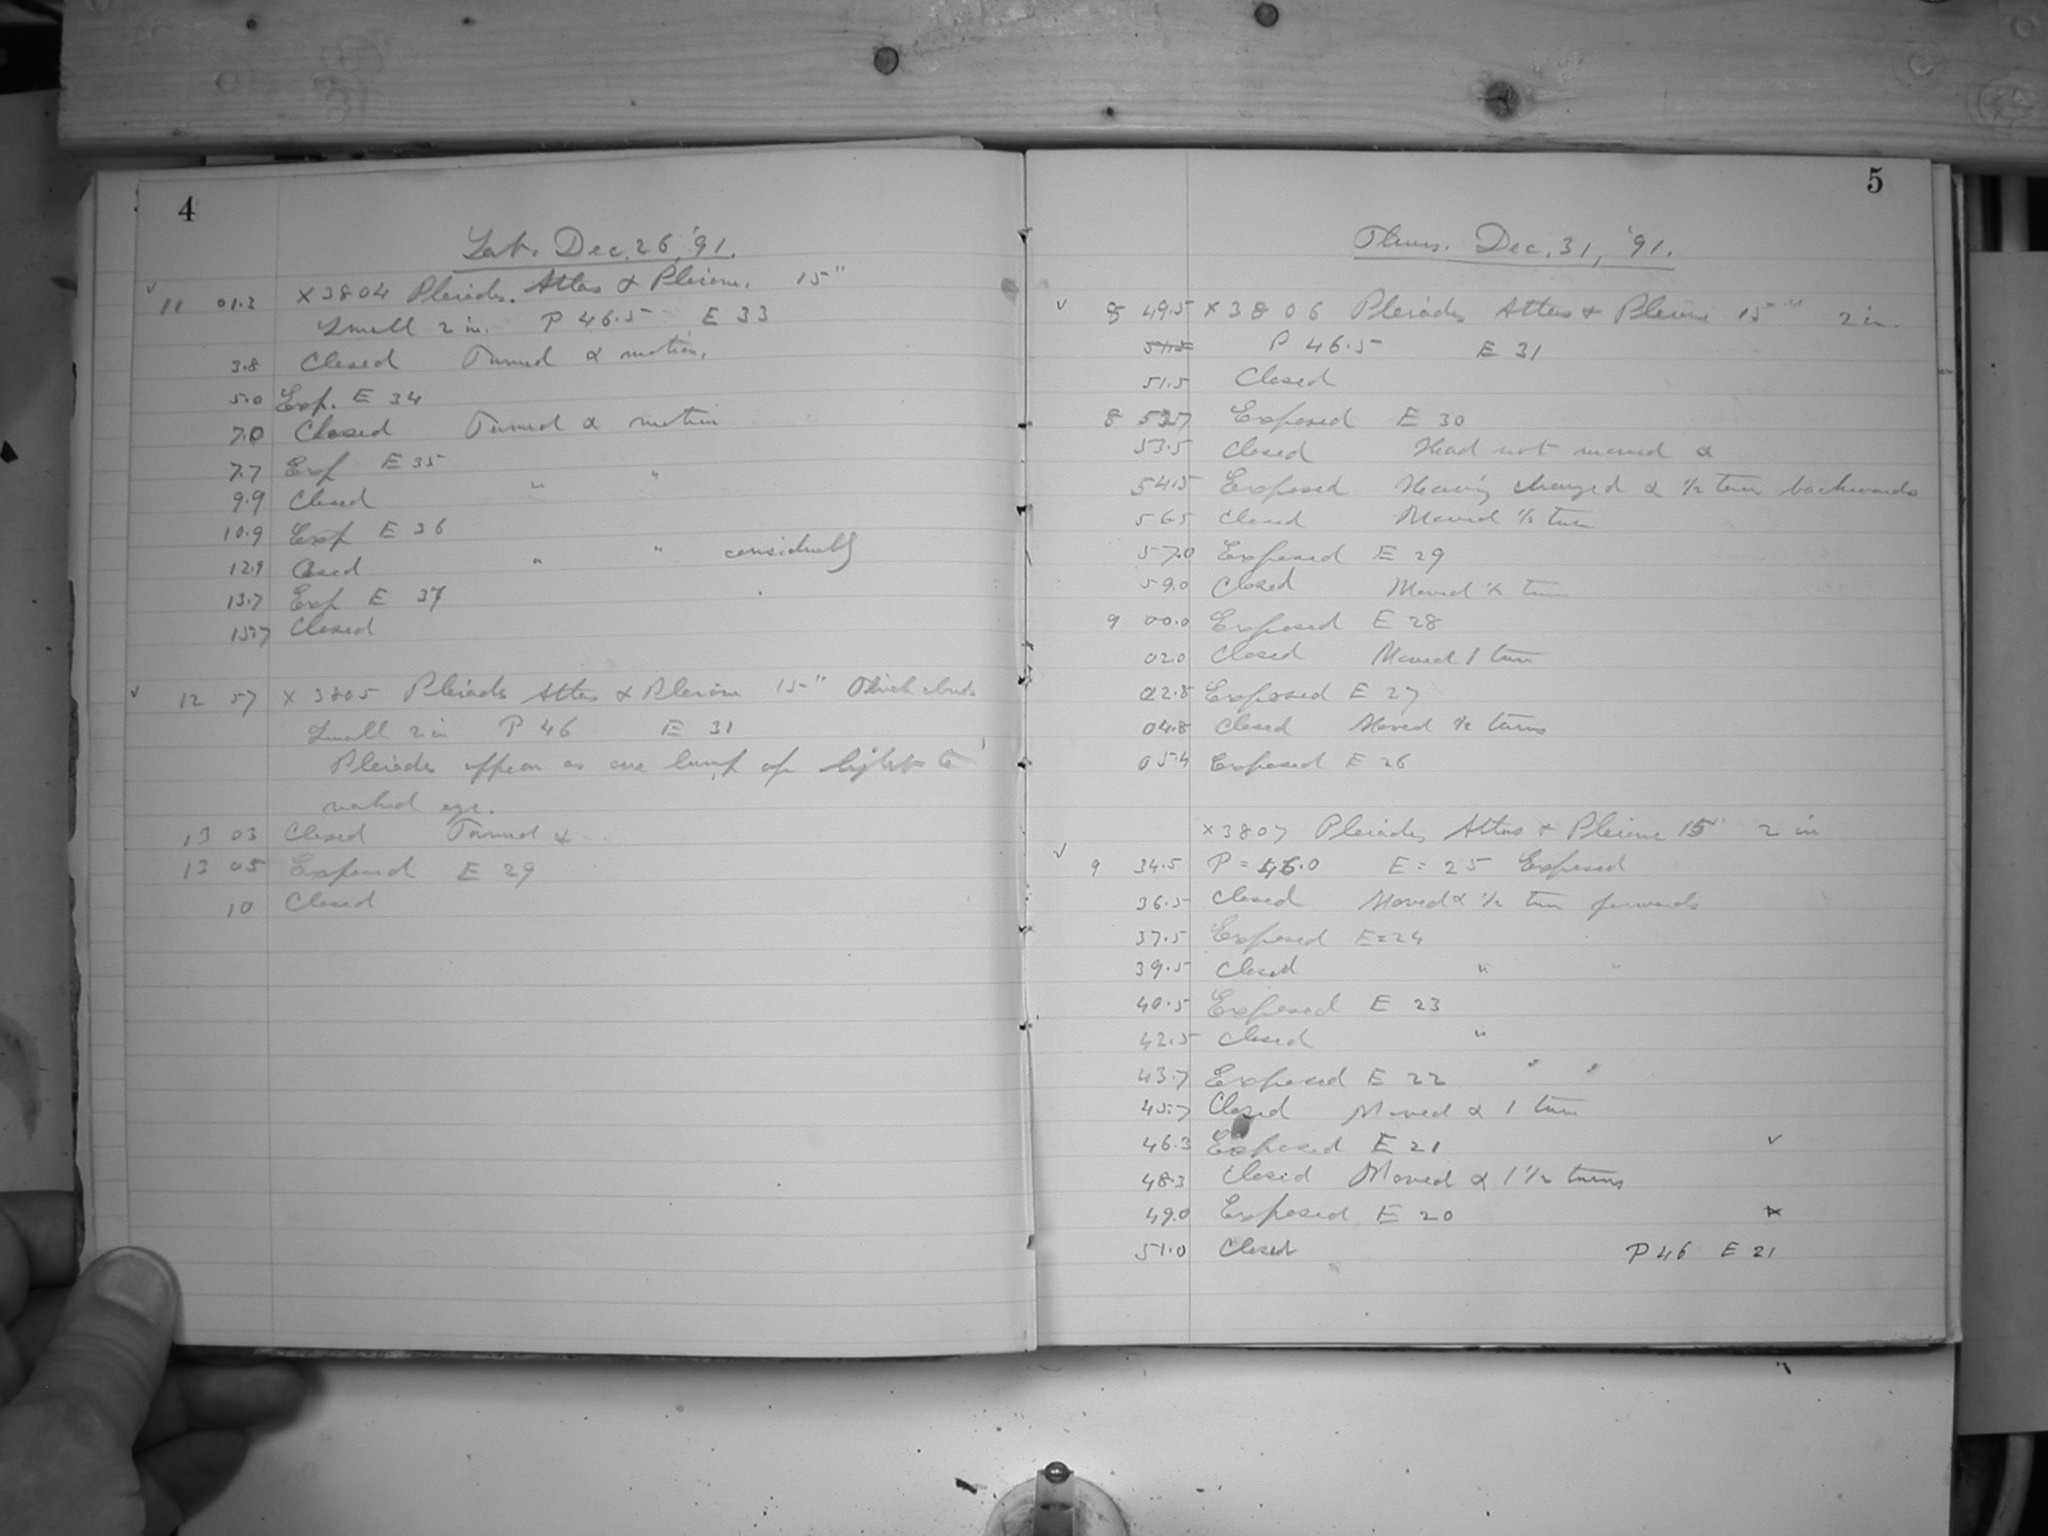 4
Sat. Dec. 26, '91.
✓ 11 01.3 X 3804 Pleiades. Atlas & Pleione. 15"
Small 2 in. P 46.5 E 33
3.8 Closed Turned α motion.
5.0 Exp. E 34
7.0 Closed Turned α motion
7.7 Exp E 35
9.9 Closed " "
10.9 Exp E 36
12.9 Closed " " considerably
13.7 Exp E 37
15.7 Closed
✓ 12 57 X 3805 Pleiades Atlas & Pleione 15" Thick clouds
Small 2 in P 46 E 31
Pleiades appear as one lump of light to
naked eye.
13 03 Closed Turned α
13 05 Exposed E 29
10 Closed
5
Thurs. Dec. 31, '91.
✓ 8 49.5 X 3806 Pleiades Atlas & Pleione 15" 2 in.
51.5 P 46.5 E 31
51.5 Closed
8 Exposed E 30
53.5 Closed Head not moved α
54.5 Exposed Having changed α ½ turn backwards
56.5 Closed Moved ½ turn
57.0 Exposed E 29
59.0 Closed Moved ½ turn
9 00.0 Exposed E 28
02.0 Closed Moved 1 turn
02.8 Exposed E 27
04.8 Closed Moved ½ turns
05.4 Exposed E 26
X 3807 Pleiades Atlas & Pleione 15" 2 in
✓ 9 34.5 P = 46.0 E = 25 Exposed
36.5 Closed Moved α ½ turn forwards
37.5 Exposed E = 24
39.5 Closed " "
40.5 Exposed E 23
42.5 Closed "
43.7 Exposed E 22 " "
45.7 Closed Moved α 1 turn
46.3 Exposed E 21 ✓
48.3 Closed Moved α 1 ½ turns
49.0 Exposed E 20
51.0 Closed P 46 E 21